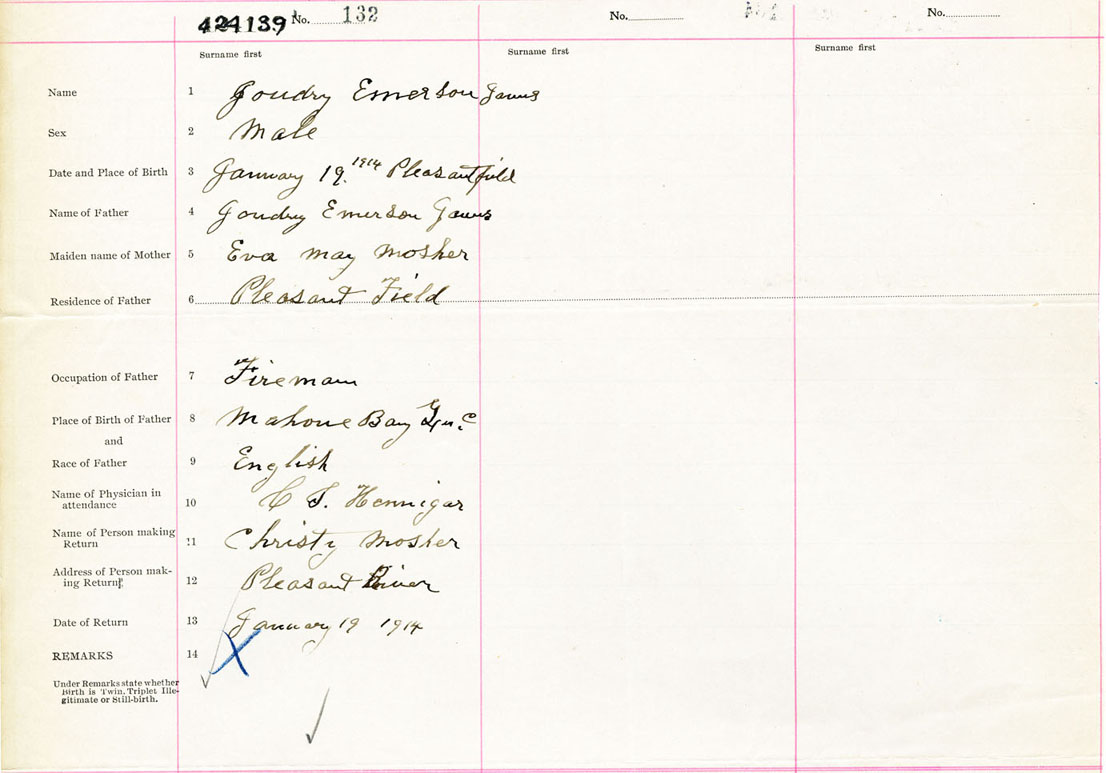 424139 No. 132 No. No.
Surname first Surname first Surname first
Name 1 Goudry Emerson James
Sex 2 Male
Date and Place of Birth 3 January 19. 1914 Pleasantfield
Name of Father 4 Goudry Emerson James
Maiden name of Mother 5 Eva May Mosher
Residence of Father 6 Pleasant Field
Occupation of Father 7 Fireman
Place of Birth of Father 8 Mahone Bay
and
Race of Father 9 English
Name of Physician in
attendance 10 C F. Hennigar
Name of Person making
Return 11 Christy Mosher
Address of Person mak-
ing Return 12 Pleasant River
Date of Return 13 January 19 1914
REMARKS 14
Under Remarks state whether
Birth is Twin, Triplet Ille-
gitimate or Still-birth.